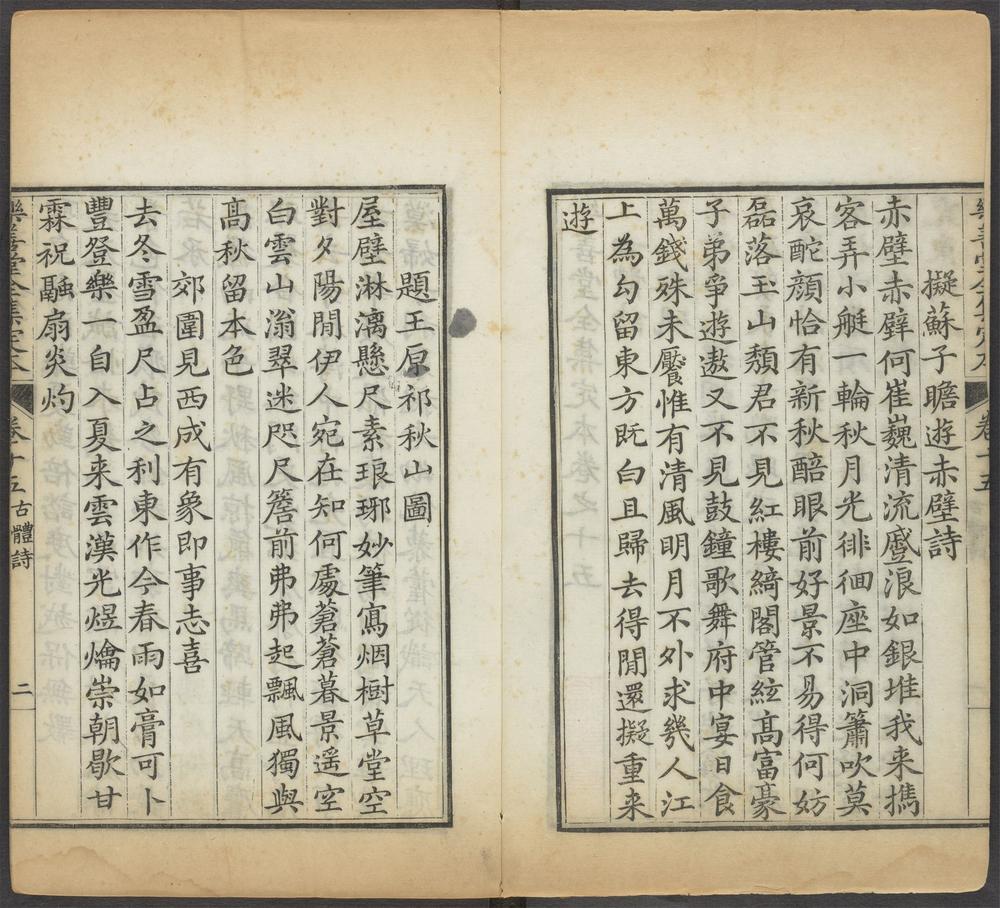 樂善堂全集定本
卷十五
擬蘇子瞻遊赤壁詩
赤壁赤壁何崔巍清流蹙浪如銀堆我来携
客弄小艇一輪秋月光徘徊座中洞簫吹莫
哀酡顔恰有新秋醅眼前好景不易得何妨
磊落玉山頽君不見紅樓綺閣管絃髙富豪
子弟爭遊遨又不見鼓鐘歌舞府中宴日食
萬錢殊未饜惟有清風明月不外求幾人江
上為勾留東方既白且歸去得閒還擬重来
遊
題王原祁秋山圖
屋壁淋漓懸尺素琅琊妙筆寫烟樹草堂空
對夕陽閒伊人宛在知何處蒼蒼暮景遥空
白雲山滃翠迷咫尺簷前弗弗起飄風獨與
髙秋留本色
郊圍見西成有象即事志喜
去冬雪盈尺占之利東作今春雨如膏可卜
豐登樂一自入夏来雲漢光熤爚崇朝歇甘
霖祝融扇炎灼
樂善堂全集定本
卷十五古體詩
二